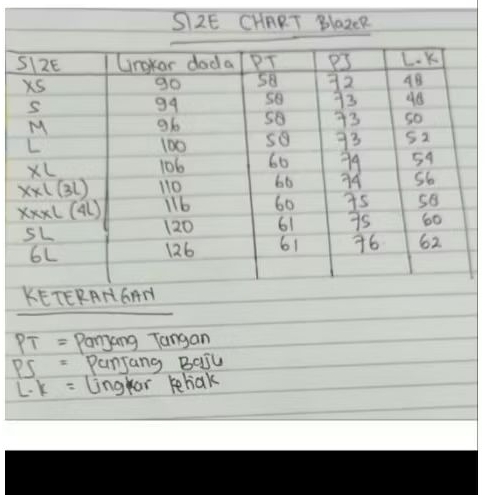 SIZE CHART BlazeR
SIZE Lingkar dada PT PJ L.K
XS 90 58 72 48
S 94 58 73 48
M 96 58 73 50
L 100 58 73 52
XL 106 60 74 54
XXL (3L) 110 60 74 56
XXXL (4L) 116 60 75 58
5L 120 61 75 60
6L 126 61 76 62
KETERANGAN
PT = Panjang Tangan
PJ = Panjang Baju
L-K = Lingkar Ketiak